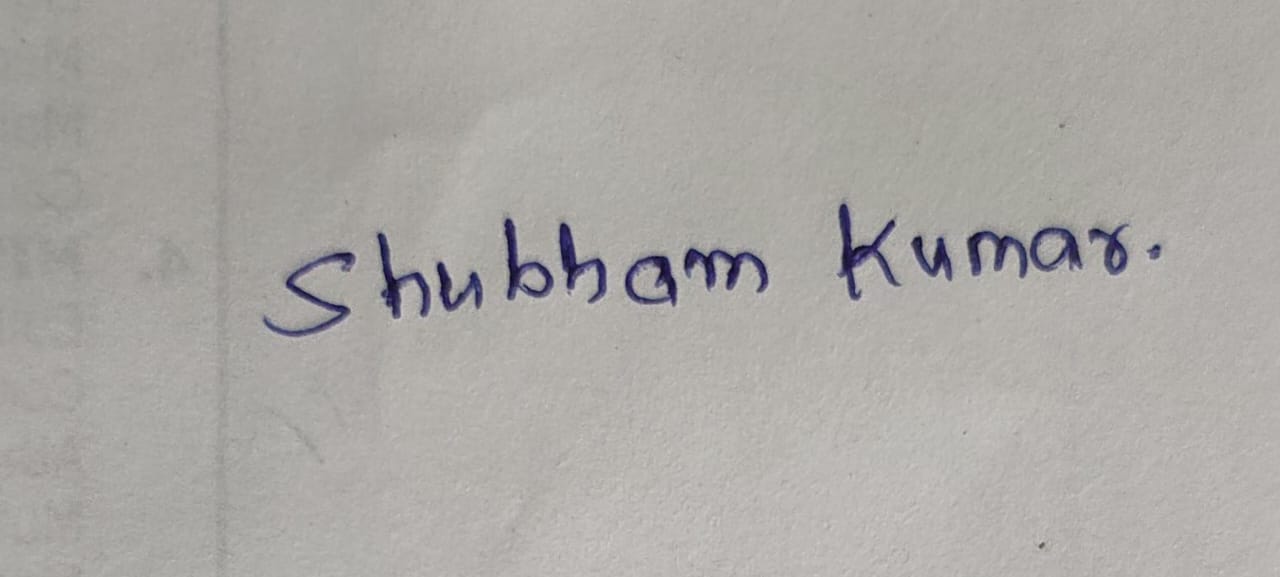 Shubham Kumar.